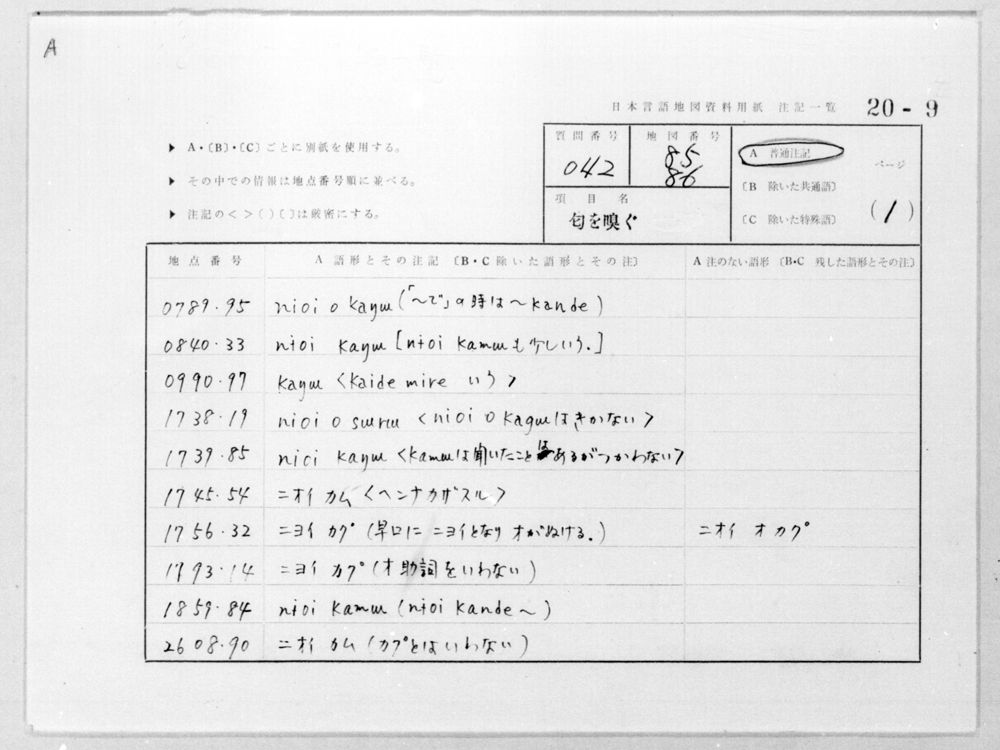 A
日本言語地図資料用紙 注記一覧 20-9
▶ A・〔B〕・〔C〕ごとに別紙を使用する。
▶ その中での情報は地点番号順に並べる。
▶ 注記の< >( )〔 〕は厳密にする。
質問番号 042
地図番号 85 86
項目名 匂を嗅ぐ
A 普通注記
〔B 除いた共通語〕
〔C 除いた特殊語〕
ページ (1)
地点番号 A 語形とその注記 〔B・C 除いた語形とその注〕 A 注のない語形 〔B・C 残した語形とその注〕
0789.95 nioi o kaŋɯ (「〜で」の時は〜kande)
0840.33 nɨoi kaŋɯ [nɨoi kamɯも少しいう.]
0990.97 kaŋɯ <kaide mire いう>
1738.19 nioi o sɯrɯ <nioi o kagɯはきかない>
1739.85 nici kaŋɯ <kamɯは聞いたことはあるがつかわない>
1745.54 ニオイ カム <ヘンナカザスル>
1756.32 ニヨイ カク゚ (早口に ニヨイとなり オがぬける.) ニオイ オ カク゚
1793.14 ニヨイ カク゚ (オ 助詞をいわない)
1859.84 nɨoi kamɯ (nɨoi kande〜)
2608.90 ニオイ カム (カク゚とはいわない)